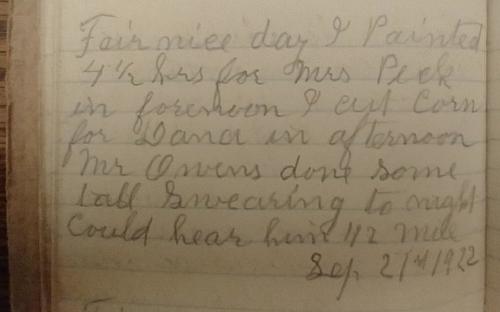 Fair nice day I Painted
4 1/2 hrs for Mrs Peck
in forenoon I cut Corn
for Dana in afternoon
Mr Owens done some
tall Swearing to night
Could hear him 1/2 Mile
Sep. 21st 1922